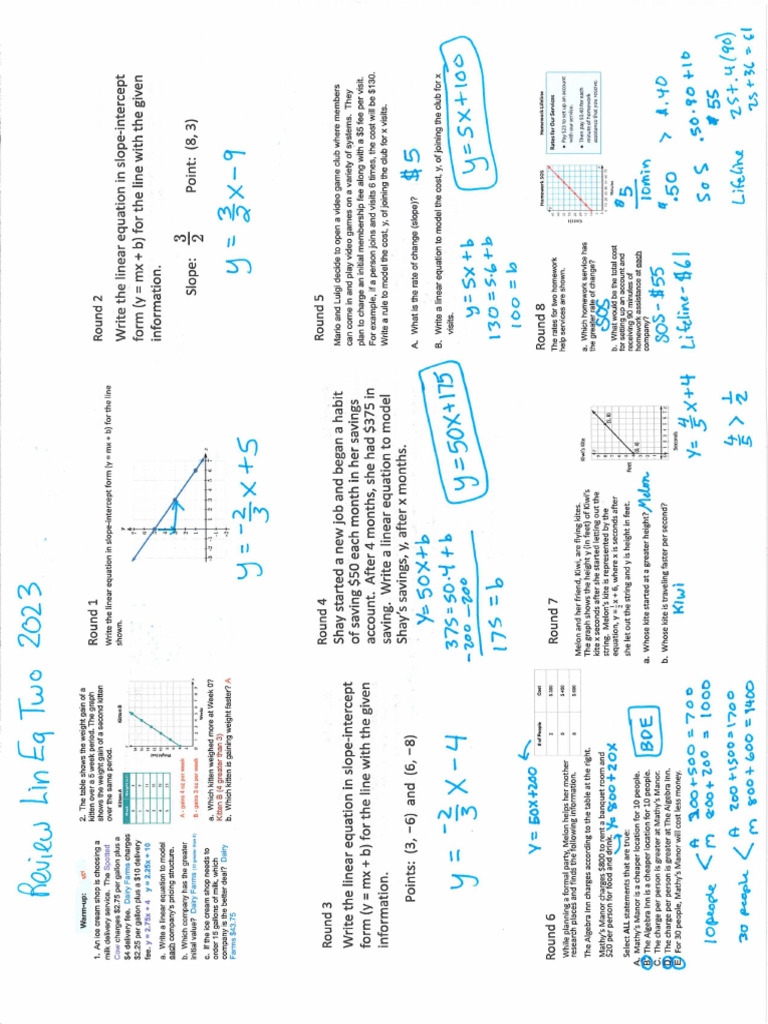 Review Lin Eq Two 2023
Warm-up:
1. An ice cream shop is choosing a
milk delivery service. The Spotted
Cow charges $2.75 per gallon plus a
$4 delivery fee. Dairy Farms charges
$2.25 per gallon plus a $10 delivery
fee. y = 2.75x + 4 y = 2.25x + 10
a. Write a linear equation to model
each company's pricing structure.
b. Which company has the greater
initial value? Dairy Farms
c. If the ice cream shop needs to
order 15 gallons of milk, which
company is the better deal? Dairy
Farms $43.75
2. The table shows the weight gain of a
kitten over a 5 week period. The graph
shows the weight gain of a second kitten
over the same period.
Kitten A
Kitten B
Weeks
A - gains 4 oz per week
B - gains 3 oz per week
a. Which kitten weighed more at Week 0?
Kitten B (4 greater than 3)
b. Which kitten is gaining weight faster? A
Round 1
Write the linear equation in slope-intercept form (y = mx + b) for the line
shown.
y = -2/3 x + 5
Round 2
Write the linear equation in slope-intercept
form (y = mx + b) for the line with the given
information.
Slope: 3/2 Point: (8, 3)
y = 3/2 x - 9
Round 3
Write the linear equation in slope-intercept
form (y = mx + b) for the line with the given
information.
Points: (3, −6) and (6, −8)
y = -2/3 x - 4
Round 4
Shay started a new job and began a habit
of saving $50 each month in her savings
account. After 4 months, she had $375 in
saving. Write a linear equation to model
Shay's savings, y, after x months.
Y = 50X + b
375 = 50·4 + b
-200 -200
175 = b
y = 50x + 175
Round 5
Mario and Luigi decide to open a video game club where members
can come in and play video games on a variety of systems. They
plan to charge an initial membership fee along with a $5 fee per visit.
For example, if a person joins and visits 6 times, the cost will be $130.
Write a rule to model the cost, y, of joining the club for x visits.
A. What is the rate of change (slope)? $5
B. Write a linear equation to model the cost, y, of joining the club for x
visits.
y = 5x + b
130 = 5·6 + b
100 = b
y = 5x + 100
Round 6
While planning a formal party, Melon helps her mother
research places and finds the following information:
The Algebra Inn charges according to the table at the right.
Mathy's Manor charges $800 to rent a banquet room and
$20 per person for food and drink. y = 800 + 20x
# of People Cost
Y = 50x + 200
Select ALL statements that are true:
A. Mathy's Manor is a cheaper location for 10 people.
B. The Algebra Inn is a cheaper location for 10 people.
C. The charge per person is greater at Mathy's Manor.
D. The charge per person is greater at The Algebra Inn.
E. For 30 people, Mathy's Manor will cost less money.
BDE
10 people < A 200 + 500 = 700
M 800 + 200 = 1000
30 people < A 200 + 1500 = 1700
M 800 + 600 = 1400
Round 7
Melon and her friend, Kiwi, are flying kites.
The graph shows the height y (in feet) of Kiwi's
kite x seconds after she started letting out the
string. Melon's kite is represented by the
equation, y = ½x + 6, where x is seconds after
she let out the string and y is height in feet.
Kiwi's Kite
Feet
Seconds
a. Whose kite started at a greater height? Melon
b. Whose kite is traveling faster per second?
Kiwi
Y = 4/5 x + 4
4/5 > 1/2
Round 8
The rates for two homework
help services are shown.
Homework SOS
Minutes
Homework Lifeline
Rates for Our Services
• Pay $25 to set up an account
with our service.
• Then pay $0.40 for each
minute of homework
assistance that you receive.
a. Which homework service has
the greater rate of change?
SOS
b. What would be the total cost
for setting up an account and
receiving 90 minutes of
homework assistance at each
company?
SOS - $55
Lifeline - $61
$5
10 min
$.50 > $.40
SOS .50·90 + 10
$55
Lifeline 25 + .4(90)
25 + 36 = 61